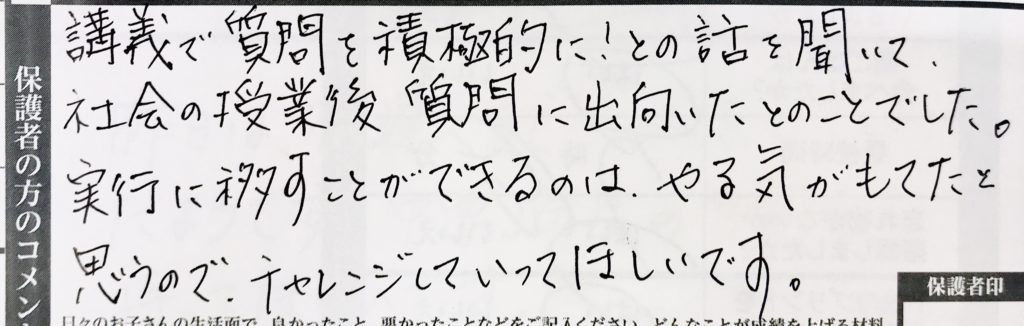 講義で質問を積極的に!との話を聞いて、
社会の授業後質問に出向いたとのことでした。
実行に移すことができるのは、やる気がもてたと
思うので、チャレンジしていってほしいです。
保護者の方のコメント
保護者印
日々のお子さんの生活面で、良かったこと、悪かったことなどをご記入ください。どんなことが成績を上げる材料